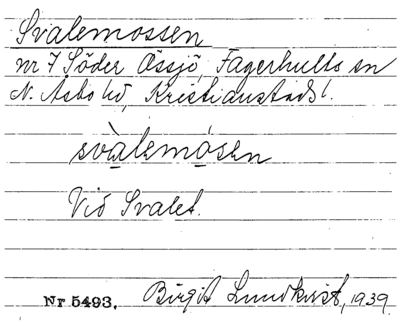 Svalemossen
nr 7 Söder Össjö, Fagerhults sn
N. Åsbo hd, Kristianstads l.
svàlemósen
Vid Svalet.
Nr 5493. Birgit Lundkvist, 1939.